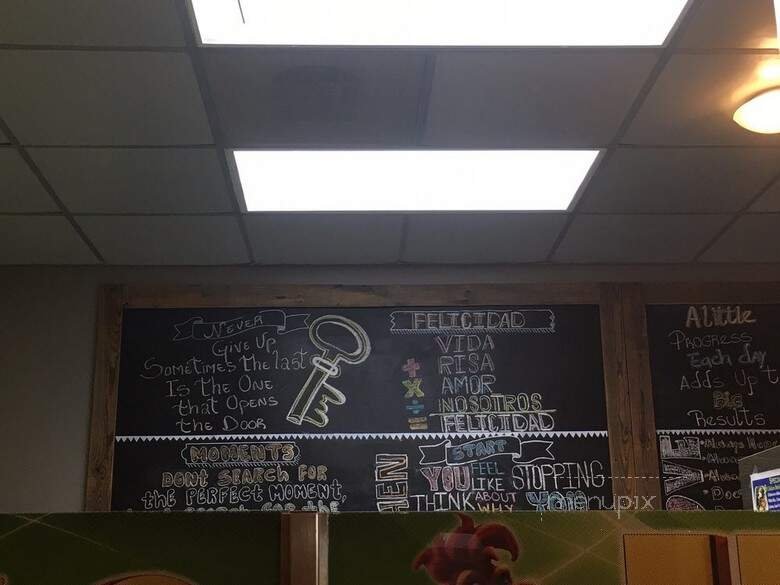 NEVER
GIVE UP,
SOMETIMES THE LAST
IS THE ONE
THAT OPENS
THE DOOR
FELICIDAD
VIDA
+ RISA
X AMOR
÷ NOSOTROS
= FELICIDAD
MOMENTS
DONT SEARCH FOR
THE PERFECT MOMENT,
START
YOU FEEL LIKE STOPPING
THINK ABOUT WHY YOU
A little
PROGRESS
Each day
Adds Up
BIG
Results
menupix